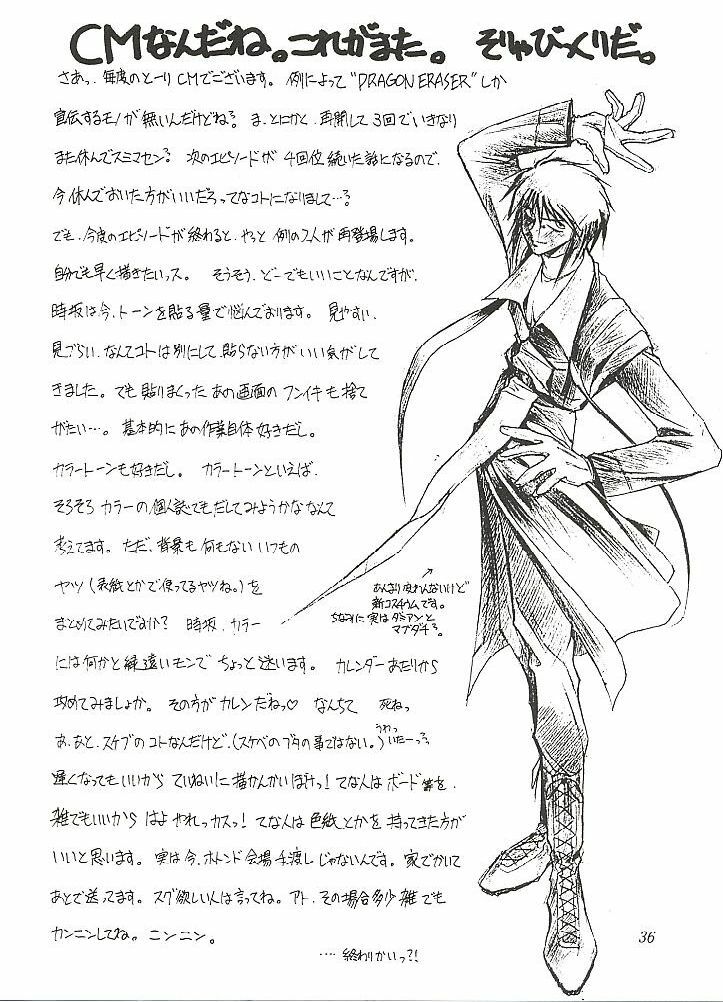 CMなんだね。これがまた。 そりゃびっくりだ。
さあっ、毎度のとーりCMでございます。 例によって“DRAGON ERASER”しか
宣伝するモノが無いんだけどね? ま、とにかく、再開して3回でいきなり
また休んでスミマセン? 次のエピソードが 4回位続いた話になるので、
今休んでおいた方がいいだろってなコトになりまして…?
でも、今度のエピソードが終わると、やっと 例の2人が再登場します。
自分でも早く描きたいっス。 そうそう、どーでもいいことなんですが、
時坂は今、トーンを貼る量で悩んでおります。 見やすい、
見づらい、なんてコトは別にして、貼らない方がいい気がして
きました。でも 貼りまくった あの画面の フンイキも 捨て
がたい…。 基本的にあの作業自体 好きだし。
カラートーンも好きだし。 カラートーンといえば、
そろそろ カラーの個人誌でもだしてみようかな なんて
考えてます。 ただ、背景も 何もない いつもの
ヤツ(表紙とかで使ってるヤツね。)を
まとめてみたいですか? 時坂、カラー
には何かと縁遠いモンで ちょっと迷います。 カレンダーあたりから
攻めてみましょか。 その方が カレンだねっ♡ なんちて 死ねっ
あ、あと、スケブのコトなんだけど、(スケベのブタの事ではない。)うわっいたーっ?
遅くなってもいいから ていねいに描かんかいぼけっ! てな人はボード等を、
雑でもいいから はよ やれっカスっ! てな人は色紙とかを 持ってきた方が
いいと思います。 実は今、ホトンド会場手渡しじゃないんです。 家でかいて
あとで送ってます。 スグ欲しい人は言ってね。アト、その場合多少雑でも
カンニンしてね。 ニンニン。
…. 終わりかいっ?!
あんまり変れんないけど
新コスチウムです。
ちなみに 実は ダミアンと
マブダチ?。
36